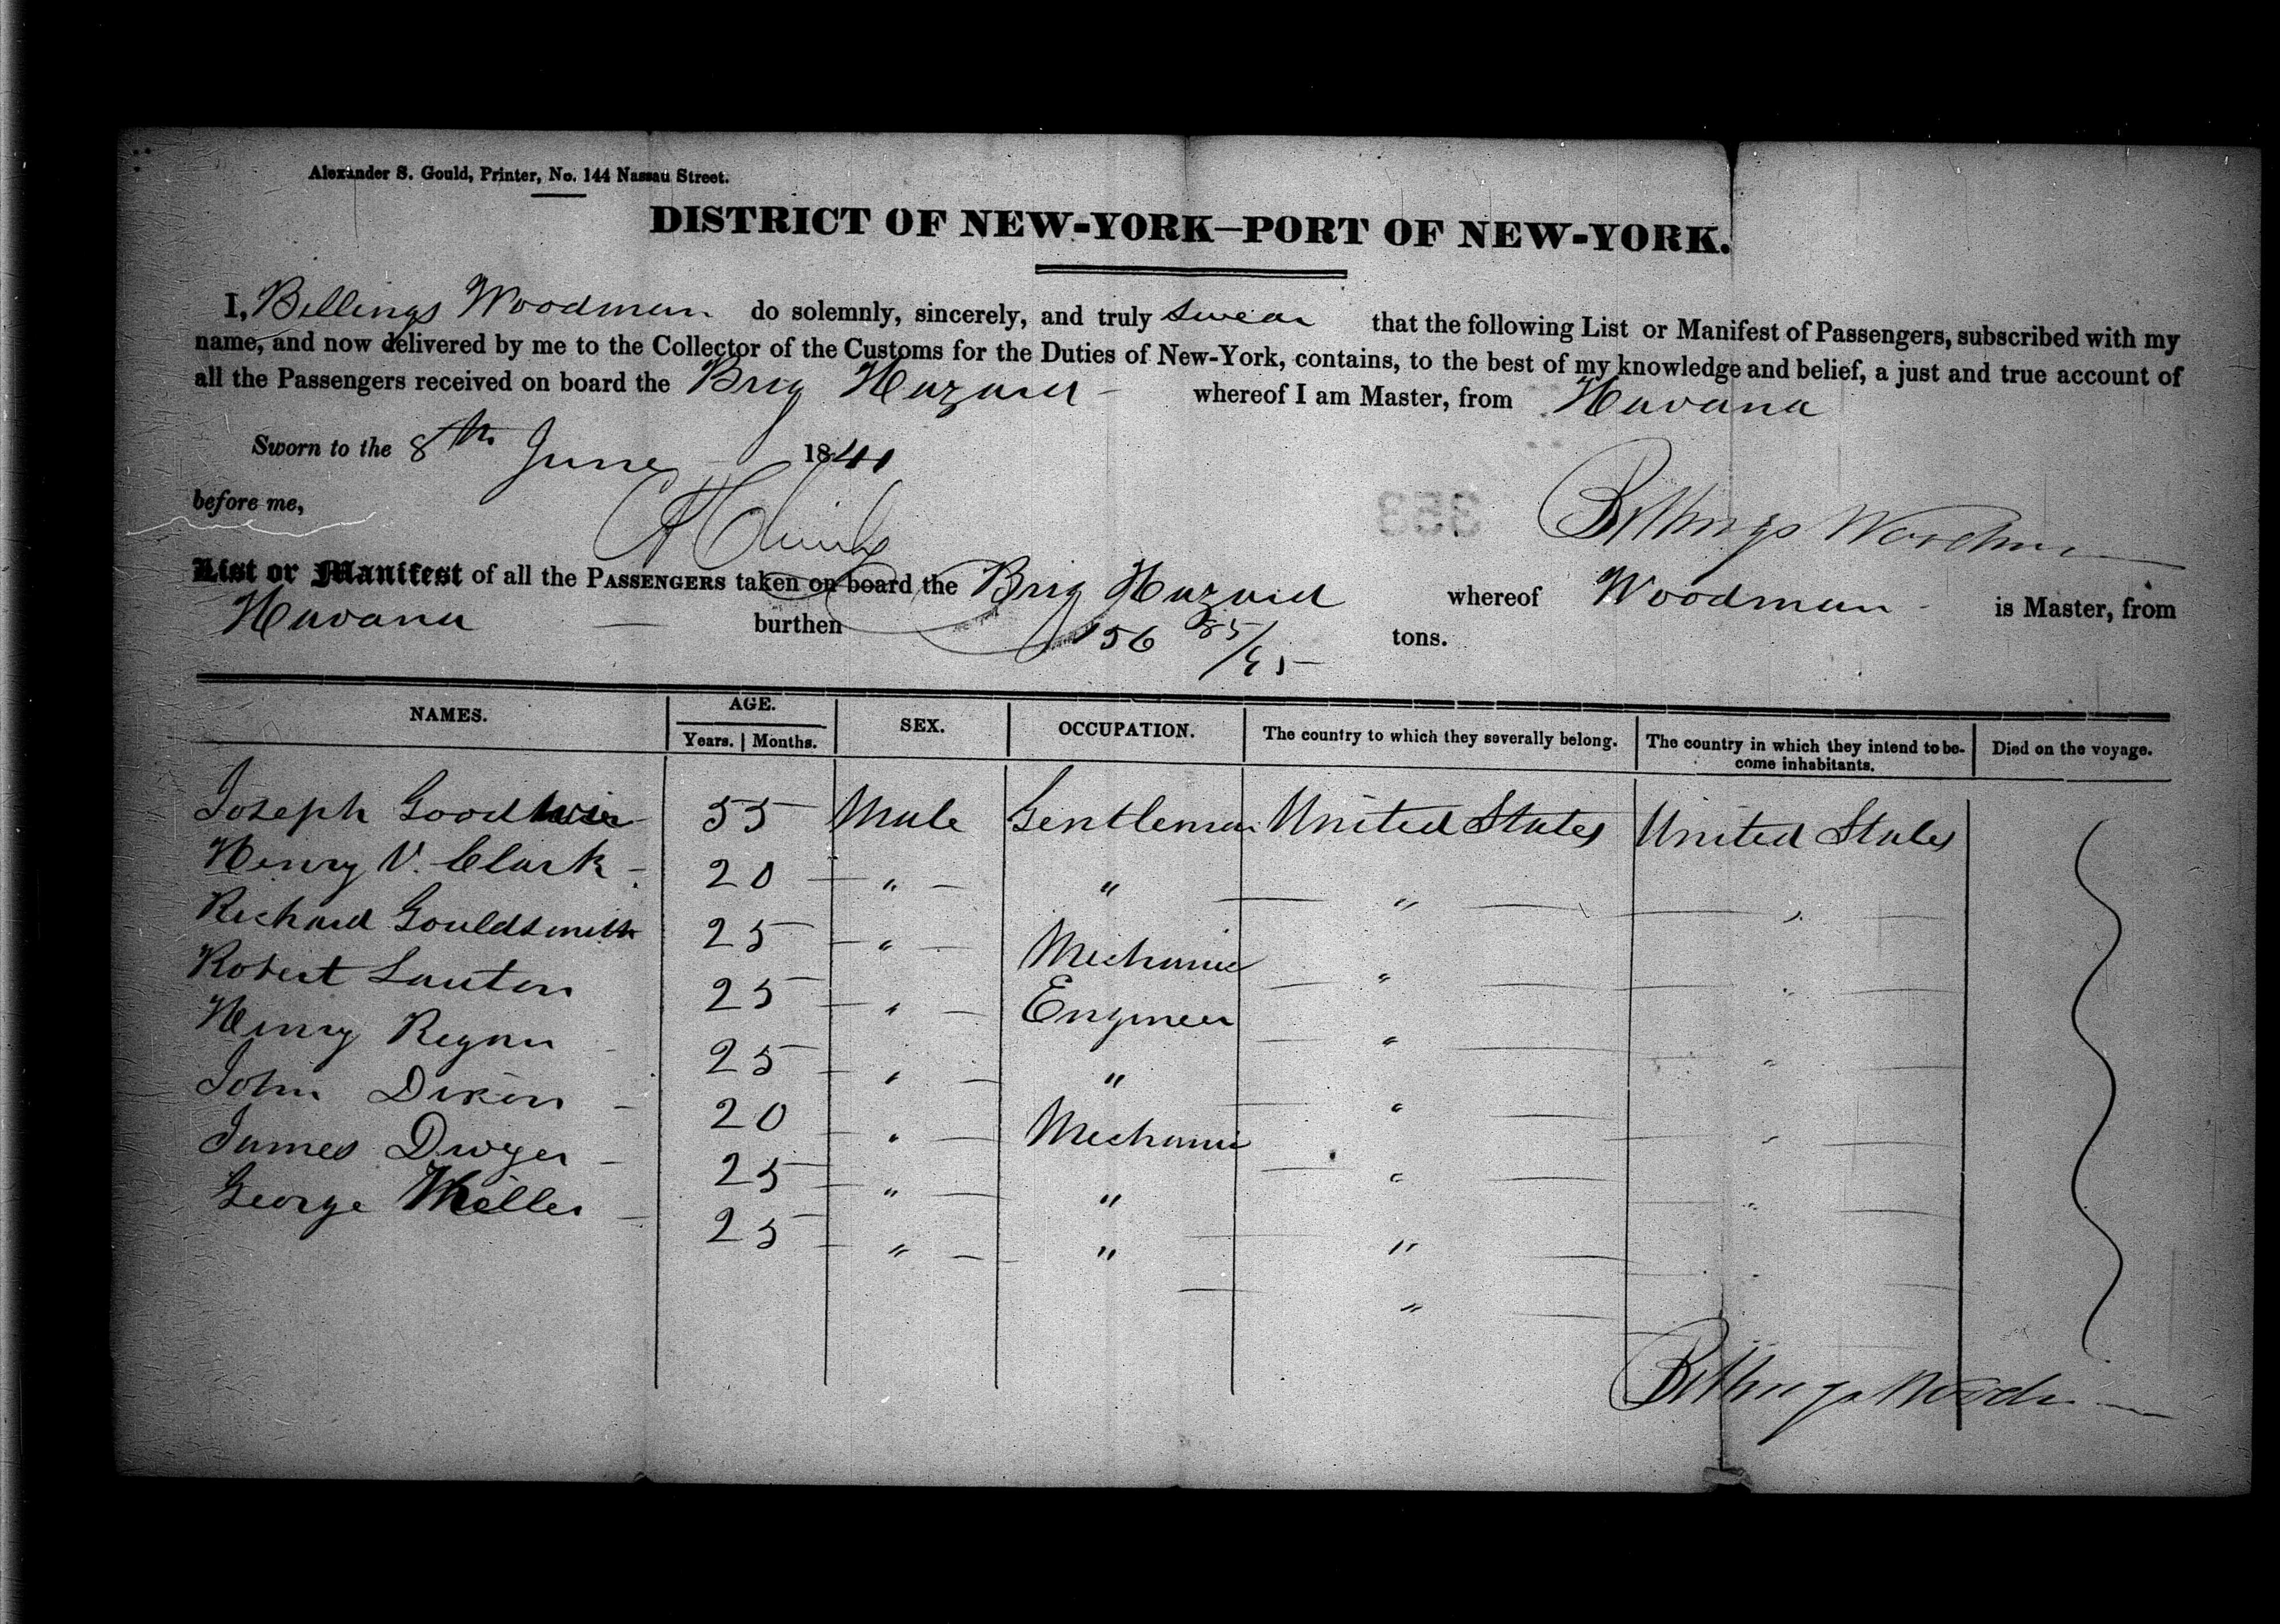 Alexander S. Gould, Printer, No. 144 Nassau Street.
DISTRICT OF NEW-YORK—PORT OF NEW-YORK.
I, Billings Woodman do solemnly, sincerely, and truly swear that the following List or Manifest of Passengers, subscribed with my
name, and now delivered by me to the Collector of the Customs for the Duties of New-York, contains, to the best of my knowledge and belief, a just and true account of
all the Passengers received on board the Brig Hazard whereof I am Master, from Havana
Sworn to the 8th June 1841
before me,
353
Billings Woodman
List or Manifest of all the PASSENGERS taken on board the Brig Hazard whereof Woodman is Master, from
Havana — burthen 156 85/95 tons.
NAMES. AGE. SEX. OCCUPATION. The country to which they severally belong. The country in which they intend to be- Died on the voyage.
Years. Months. come inhabitants.
Joseph Goodwin 55 Male Gentleman United States United States
Henry V. Clark 20 " " " "
Richard Gouldsmith 25 " Mechanic " "
Robert Lauton 25 " Engineer " "
Henry 25 " " " "
John Dixon 20 " Mechanic " "
James Dwyer 25 " " " "
George Miller 25 " " " "
"
Billings Woodman